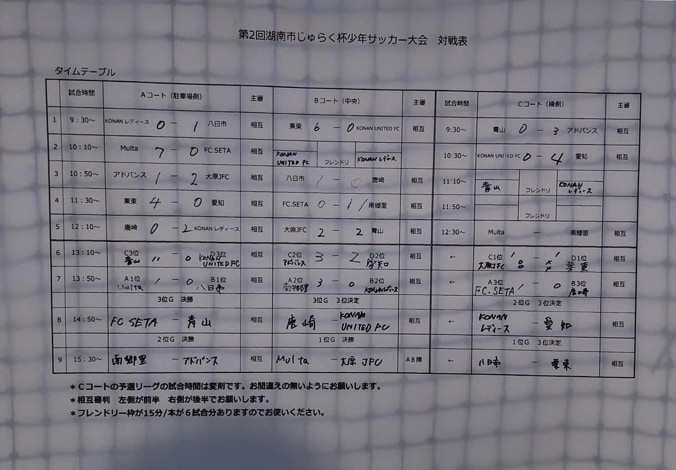 第2回湖南市じゅらく杯少年サッカー大会 対戦表
タイムテーブル
試合時間 Aコート（駐車場側） 主審 Bコート（中央） 主審 試合時間 Cコート（橋側） 主審
1 9：30～ KONAN レディース 0 － 1 八日市 相互 栗東 6 － 0 KONAN UNITED FC 相互 9:30～ 青山 0 － 3 アドバンス 相互
2 10：10～ Multa 7 － 0 FC.SETA 相互 KONAN UNITED FC フレンドリ KONAN レディース 相互 10:30～ KONAN UNITED FC 0 － 4 愛知 相互
3 10：50～ アドバンス 1 － 2 大原JFC 相互 八日市 唐崎 相互 11:10～ 青山 フレンドリ KONAN レディース 相互
4 11：30～ 栗東 4 － 0 愛知 相互 FC.SETA 0 － 1 南郷里 相互 11:50～ フレンドリ 相互
5 12：10～ 唐崎 0 － 2 KONAN レディース 相互 大原JFC 2 － 2 青山 相互 12:30～ Multa － 南郷里 相互
6 13：10～ C3位 青山 11 － 0 D3位 KONAN UNITED FC 相互 C2位 アドバンス 3 － 2 D2位 愛知 相互 ← C1位 大原JFC D1位 栗東 相互
7 13：50～ A1位 Multa 1 － 0 B1位 八日市 相互 A2位 南郷里 3 － 0 B2位 KONANレディース 相互 ← A3位 FC-SETA 1 － 0 B3位 唐崎 相互
3位G 決勝 3位G 3位決定 2位G 3位決定
8 14：50～ FC SETA － 青山 相互 唐崎 － KONAN UNITED FC 相互 ← KONAN レディース － 愛知 相互
2位G 決勝 1位G 決勝 1位G 3位決定
9 15：30～ 南郷里 － アドバンス 相互 Multa － 大原 JFC A8勝 ← 八日市 － 栗東 相互
＊Cコートの予選リーグの試合時間は変則です。お間違えの無いようにお願いします。
＊相互審判 左側が前半 右側が後半でお願いします。
＊フレンドリー枠が15分/本が6試合分ありますのでお使いください。